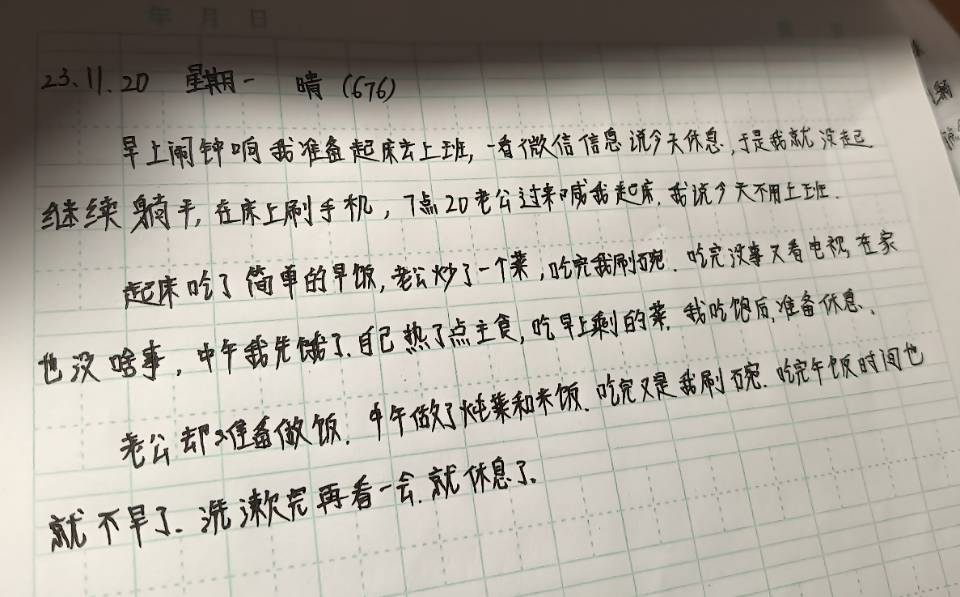 年 月 日
23.11.20 星期一 晴 (676)
早上闹钟响我准备起床去上班,一看微信信息说今天休息,于是我就没起
继续躺平,在床上刷手机,7点20老公过来喊我起床,我说今天不用上班.
起床吃了简单的早饭,老公炒了一个菜,吃完我刷碗.吃完没事又看电视,在家
也没啥事,中午我先饿了.自己热了点主食,吃早上剩的菜.我吃饱后,准备休息、
老公却准备做饭.中午做了炖菜和米饭.吃完又是我刷碗.吃完午饭时间也
就不早了.洗漱完再看一会,就休息了.